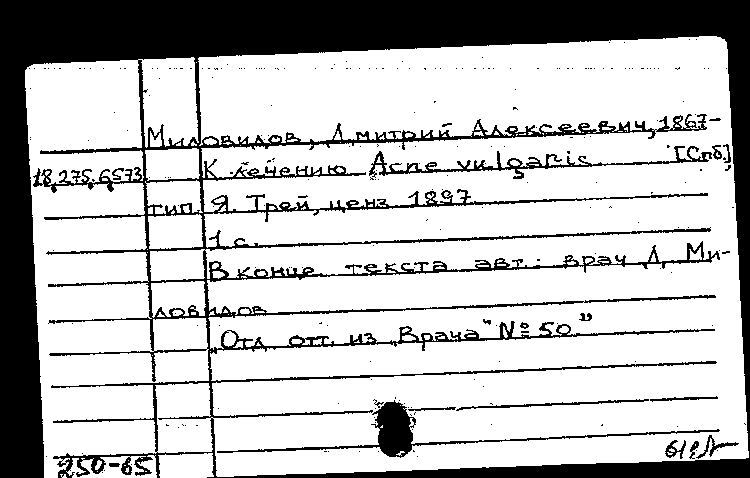 Миловидов, Дмитрий Алексеевич, 1867-
18.275.6573 К лечению Acne vulgaris. [Спб.],
тип. Я. Трей, ценз. 1897.
1 с.
В конце текста авт.: врач Д. Ми-
ловидов.
„Отд. отт. из „Врача“ № 50.”
250-65